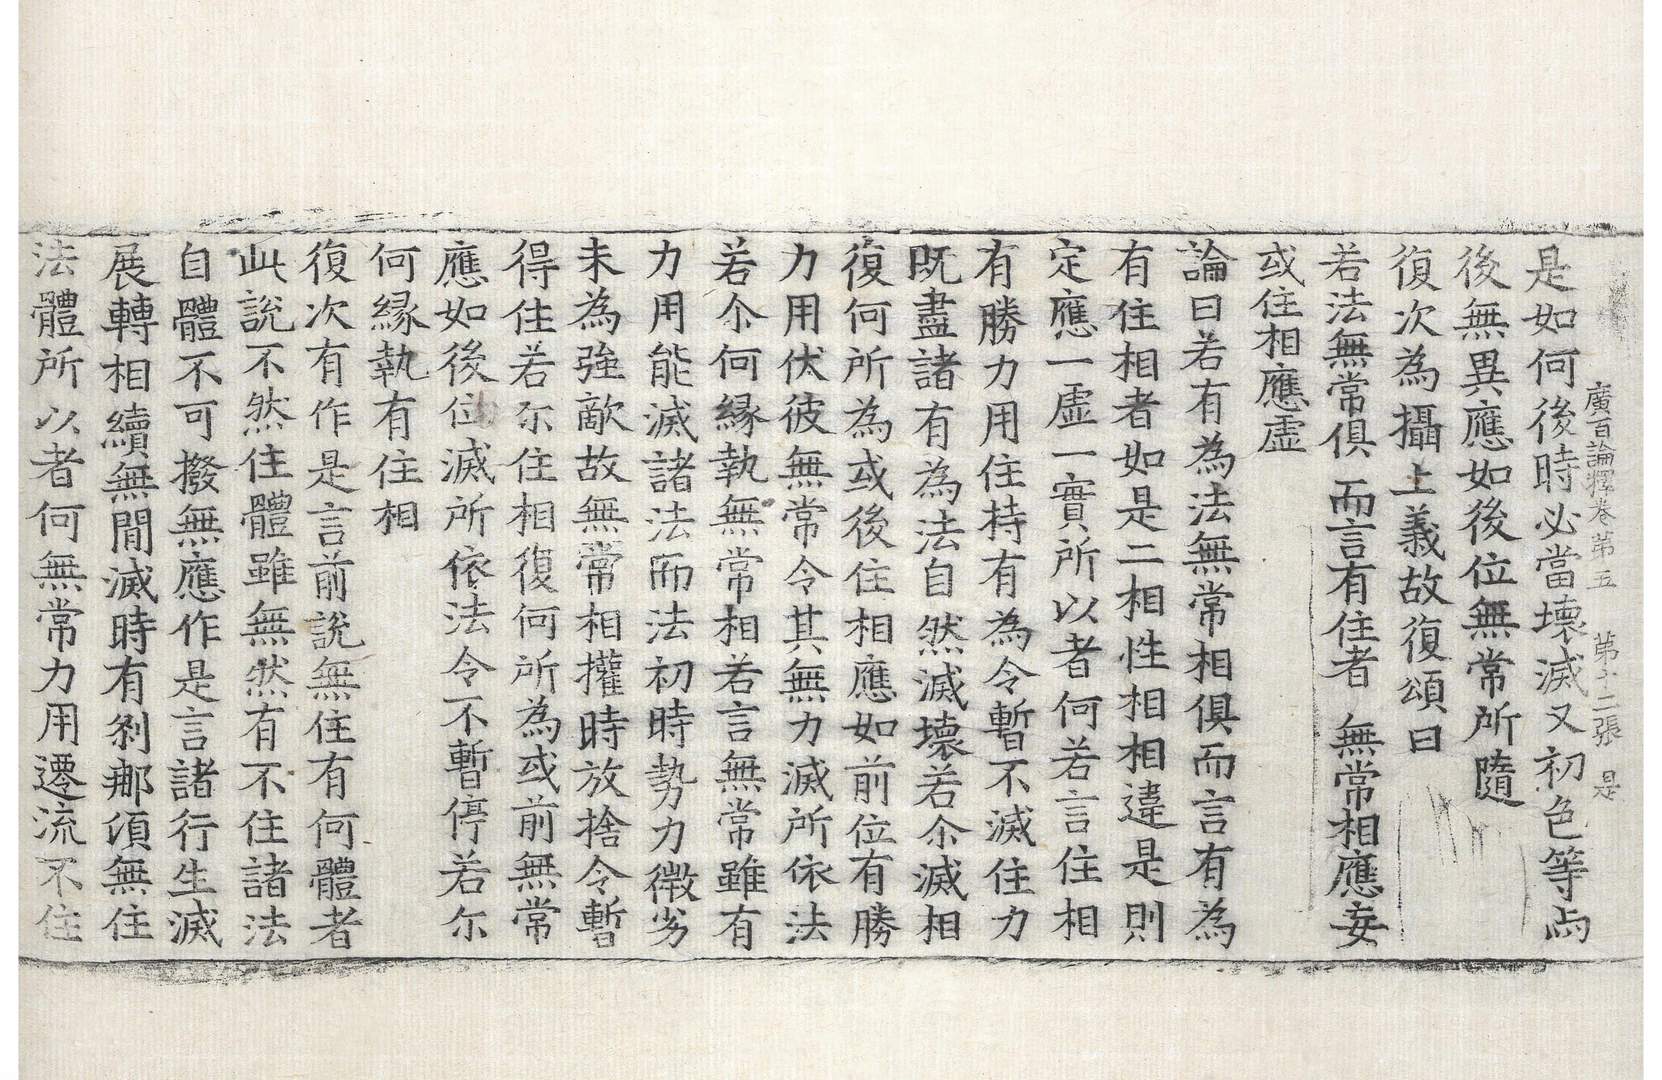 廣百論釋卷第五　第十二張　是
是如何後時必當壞滅又初色等与
後無異應如後位無常所隨
復次為攝上義故復頌曰
若法無常俱　而言有住者　無常相應妄
或住相應虛
論曰若有為法無常相俱而言有為
有住相者如是二相性相相違是則
定應一虛一實所以者何若言住相
有勝力用住持有為令暫不滅住力
既盡諸有為法自然滅壞若尒滅相
復何所為或後住相應如前位有勝
力用伏彼無常令其無力滅所依法
若尒何緣執無常相若言無常雖有
力用能滅諸法而法初時勢力微劣
未為強敵故無常相攉時放捨令暫
得住若尒住相復何所為或前無常
應如後位滅所依法令不暫停若尒
何緣執有住相
復次有作是言前說無住有何體者
此說不然住體雖無然有不住諸法
自體不可撥無應作是言諸行生滅
展轉相續無間滅時有剎那頃無住
法體所以者何無常力用遷流不住